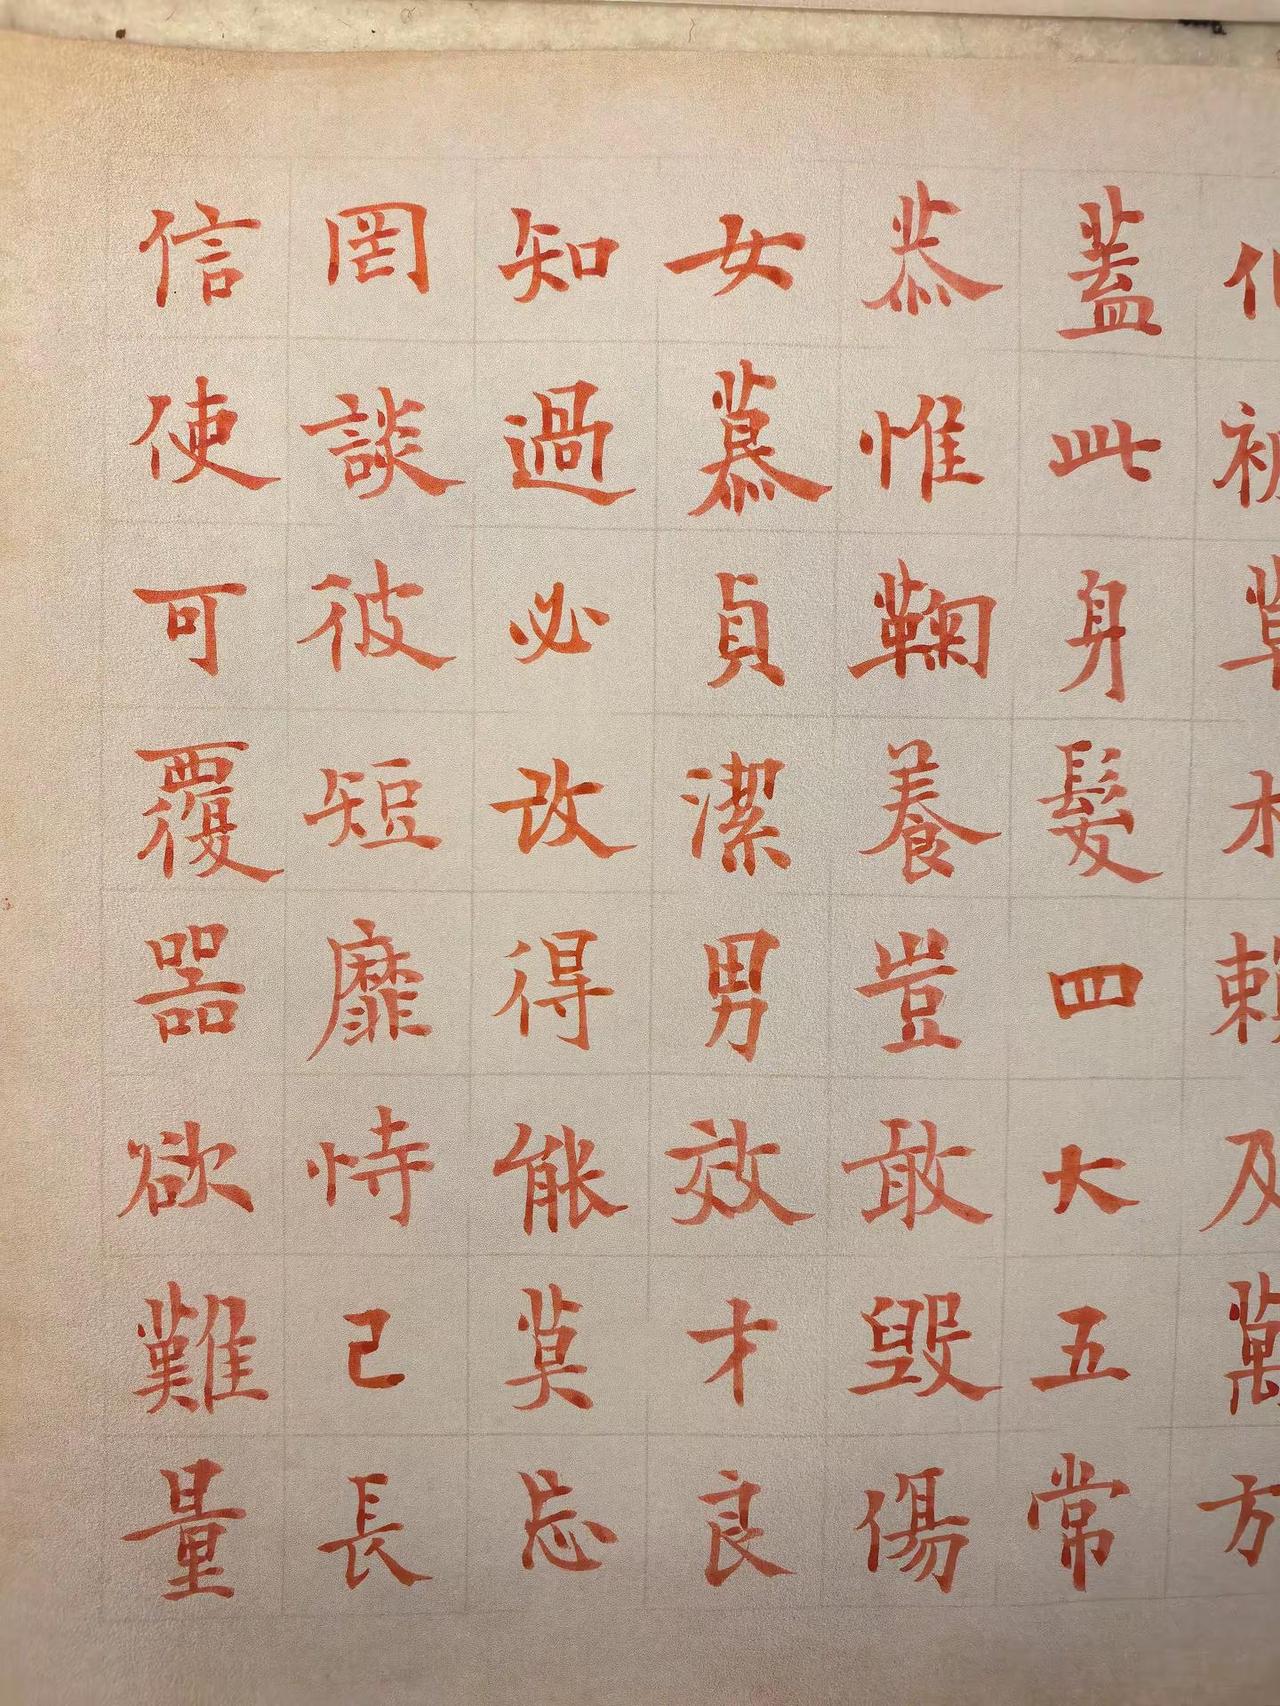 化被草木賴及萬方
蓋此身髮四大五常
恭惟鞠養豈敢毀傷
女慕貞潔男效才良
知過必改得能莫忘
罔談彼短靡恃己長
信使可覆器欲難量